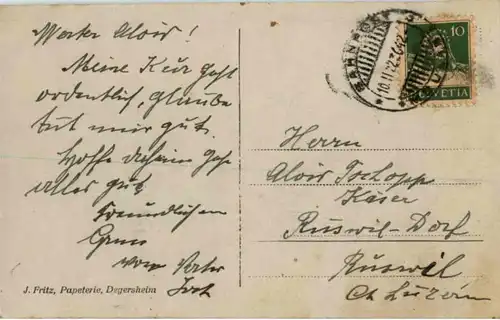 Werter Alois!
Meine Kur geht
ordentlich, glaube
tut mir gut.
Hoffe daheim geh
alles gut.
Freundlichen
Gruss
vom
J. Fritz, Papeterie, Degersheim
BAHNPOST
10.II.22
10
HELVETIA
Herrn
Alois Tschopp
Käser
Ruswil-Dorf
Ruswil
Ct Luzern